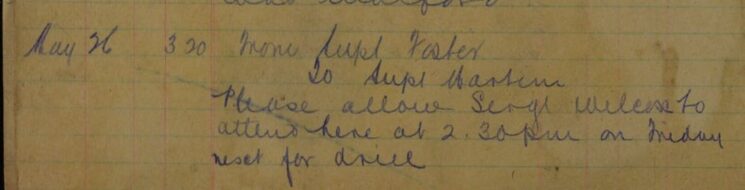 May 26 3 20 From Supt Foster
To Supt Martin
Please allow Sergt Wilcox to
attend here at 2.30pm on Friday
next for drill